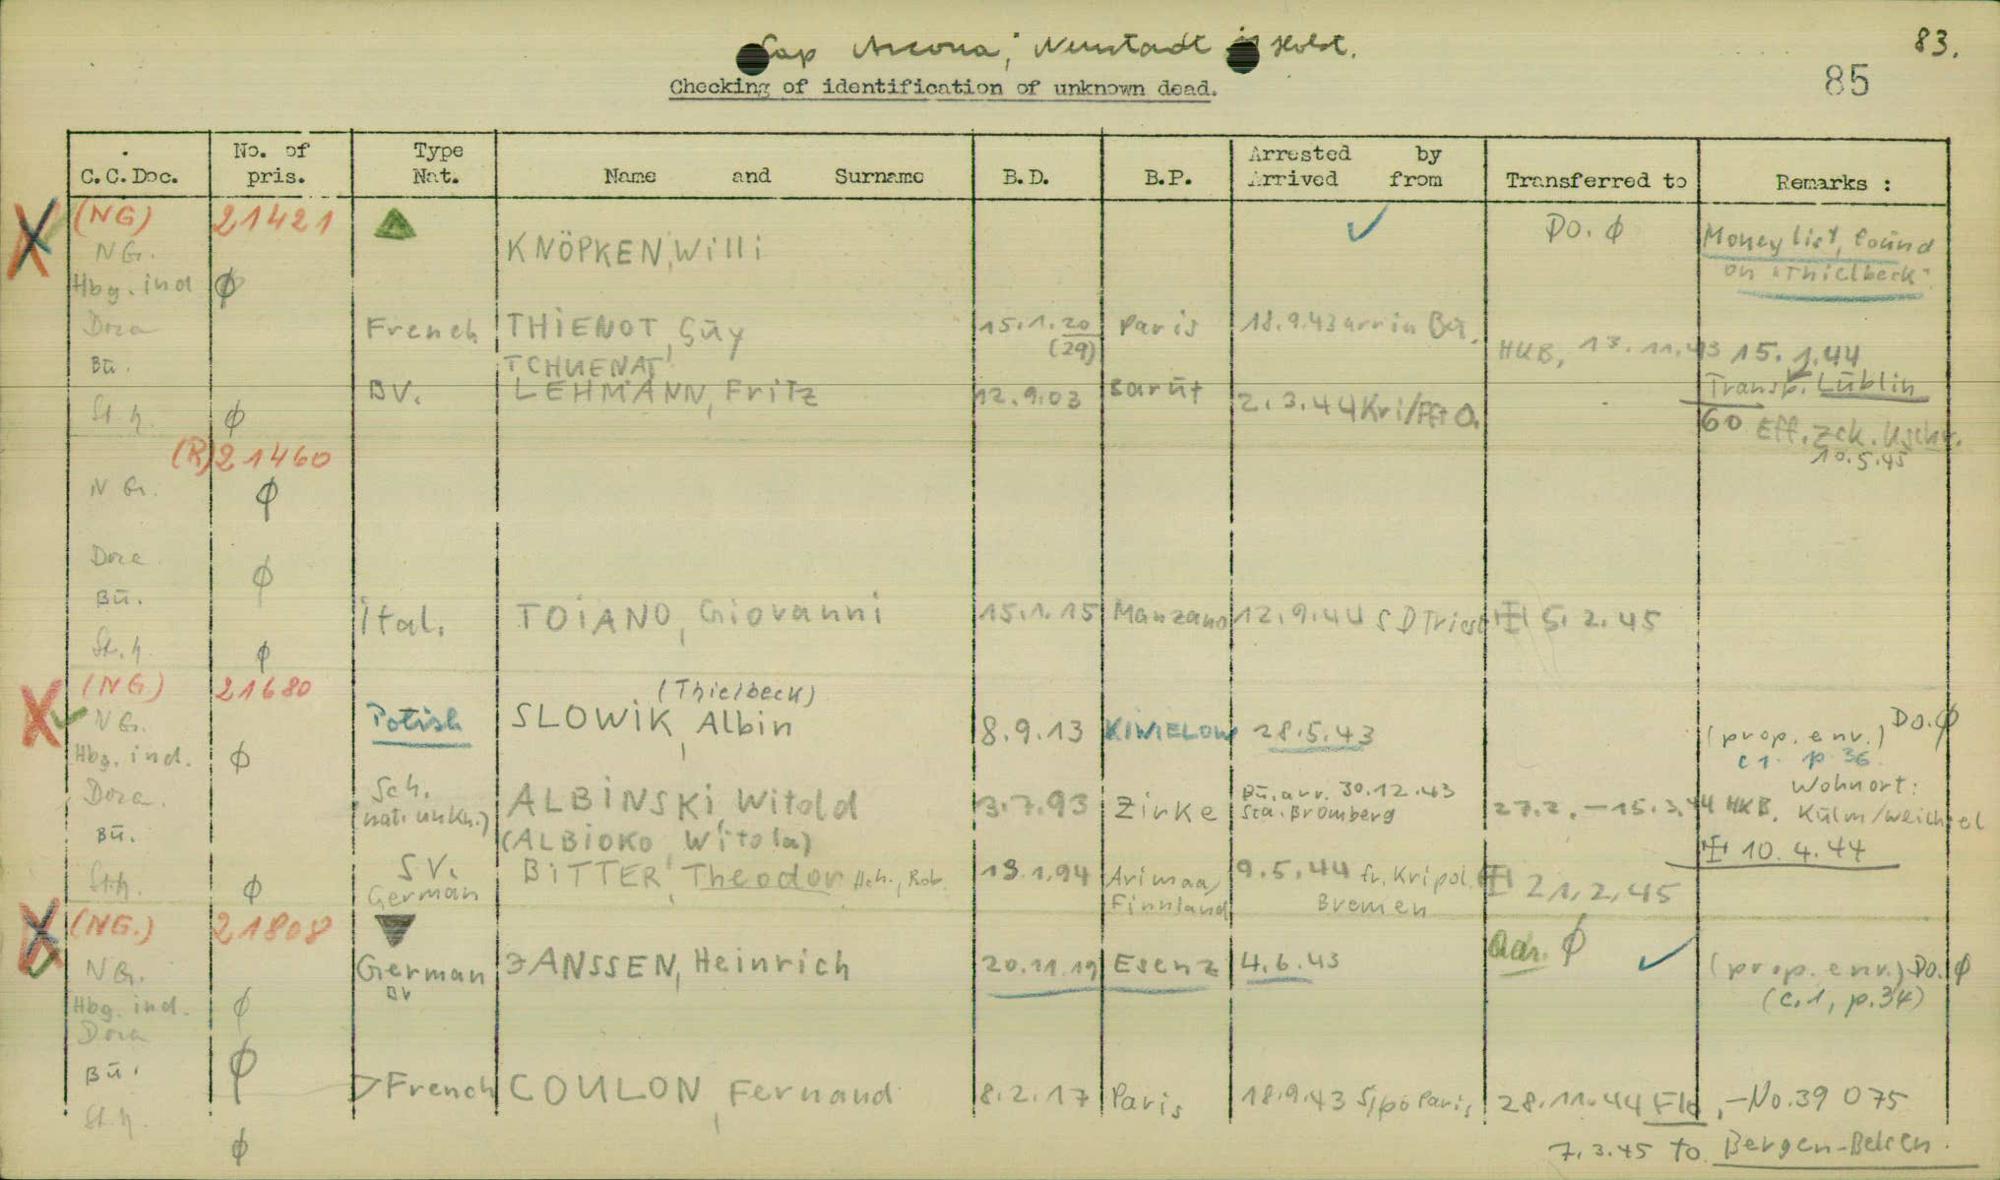 Cap Arcona, Neustadt in Holst.
83.
85
Checking of identification of unknown dead.
C.C.Doc. No. of pris. Type Nat. Name and Surname B.D. B.P. Arrested by Arrived from Transferred to Remarks :
(NG) 21421 Do. ø Money list, found
NG. KNÖPKEN, Willi on "Thielbeck"
Hbg. ind ø
Dora French THIENOT, Guy 15.1.20 Paris 18.9.43 arr in Bu.
(29) HKB, 13.11.43 15.1.44
Bū. TCHUENAT
BV. LEHMANN, Fritz 12.9.03 Barut 2.3.44 Kri/Fft O. Transp. Lublin
St.h. ø 60 Eff. zck.
10.5.45
(R) 21460
N G. ø
Dora ø
Bū.
Ital. TOIANO, Giovanni 15.1.15 Manzano 12.9.44 SD Triest 5.2.45
St.h. ø
(NG) 21680 (Thielbeck)
NG. Polish SLOWIK, Albin 8.9.13 KIWIELOW 28.5.43 (prop. env.) Do. ø
Hbg. ind. ø c 1. p 36
Dora. Sch. ALBINSKI, Witold 3.7.93 Zirke Bū. arr. 30.12.43 Wohnort:
(nat. unkn.) Sta. Bromberg 27.2.–15.3.44 HKB. Kulm/Weichsel
Bū. (ALBIOKO, Witola) 10.4.44
St.h. ø S.V. BITTER, Theodor Hch., Rob. 13.1.94 Arimaa, 9.5.44 fr. Kripol. 21.2.45
German Finnland Bremen
(NG.) 21808 Adr. ø
NG. German JANSSEN, Heinrich 20.11.19 Esenz 4.6.43 (prop. env.) Do. ø
BV
Hbg. ind. ø (c.1, p.34)
Dora
Bū. ø French COULON, Fernand 8.2.17 Paris 18.9.43 Sipo Paris 28.11.44 Fld, –No. 39 075
St.h. ø 7.3.45 to Bergen-Belsen.